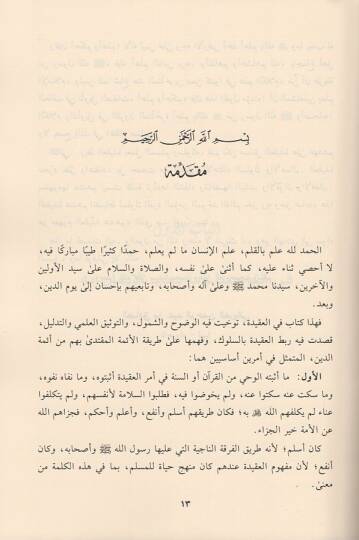 بِسْمِ اللَّهِ الرَّحْمَنِ الرَّحِيمِ
مُقَدِّمَة
الحمد لله علم بالقلم، علم الإنسان ما لم يعلم، حمدًا كثيرًا طيبًا مباركًا فيه،
لا أحصي ثناء عليه، كما أثنىٰ علىٰ نفسه، والصلاة والسلام علىٰ سيد الأولين
والآخرين، سيدنا محمد ﷺ وعلىٰ آله وأصحابه، وتابعيهم بإحسان إلىٰ يوم الدين،
وبعد.
فهذا كتاب في العقيدة، توخيت فيه الوضوح والشمول، والتوثيق العلمي والتدليل،
قصدت فيه ربط العقيدة بالسلوك، وفهمها علىٰ طريقة الأئمة المقتدىٰ بهم من أئمة
الدين، المتمثل في أمرين أساسيين هما:
الأول: ما أثبته الوحي من القرآن أو السنة في أمر العقيدة أثبتوه، وما نفاه نفوه،
وما سكت عنه سكتوا عنه، ولم يخوضوا فيه، فطلبوا السلامة لأنفسهم، ولم يتكلفوا
عناء لم يكلفهم الله به؛ فكان طريقهم أسلم وأنفع، وأعلم وأحكم، فجزاهم الله
عن الأمة خير الجزاء.
كان أسلم؛ لأنه طريق الفرقة الناجية التي عليها رسول الله ﷺ وأصحابه، وكان
أنفع؛ لأن مفهوم العقيدة عندهم كان منهج حياة للمسلم، بما في هذه الكلمة من
معنىٰ.
١٣